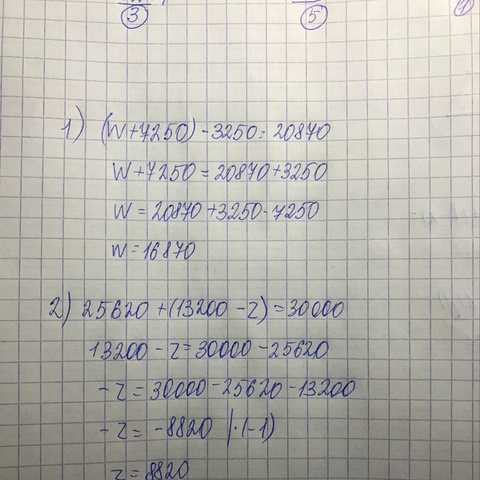 3
5
1) (W+7250) - 3250 = 20870
W+7250 = 20870+3250
W = 20870+3250-7250
W = 16870
2) 25620 + (13200 - z) = 30000
13200 - z = 30000 - 25620
- z = 30000 - 25620 - 13200
- z = - 8820 | · (-1)
z = 8820